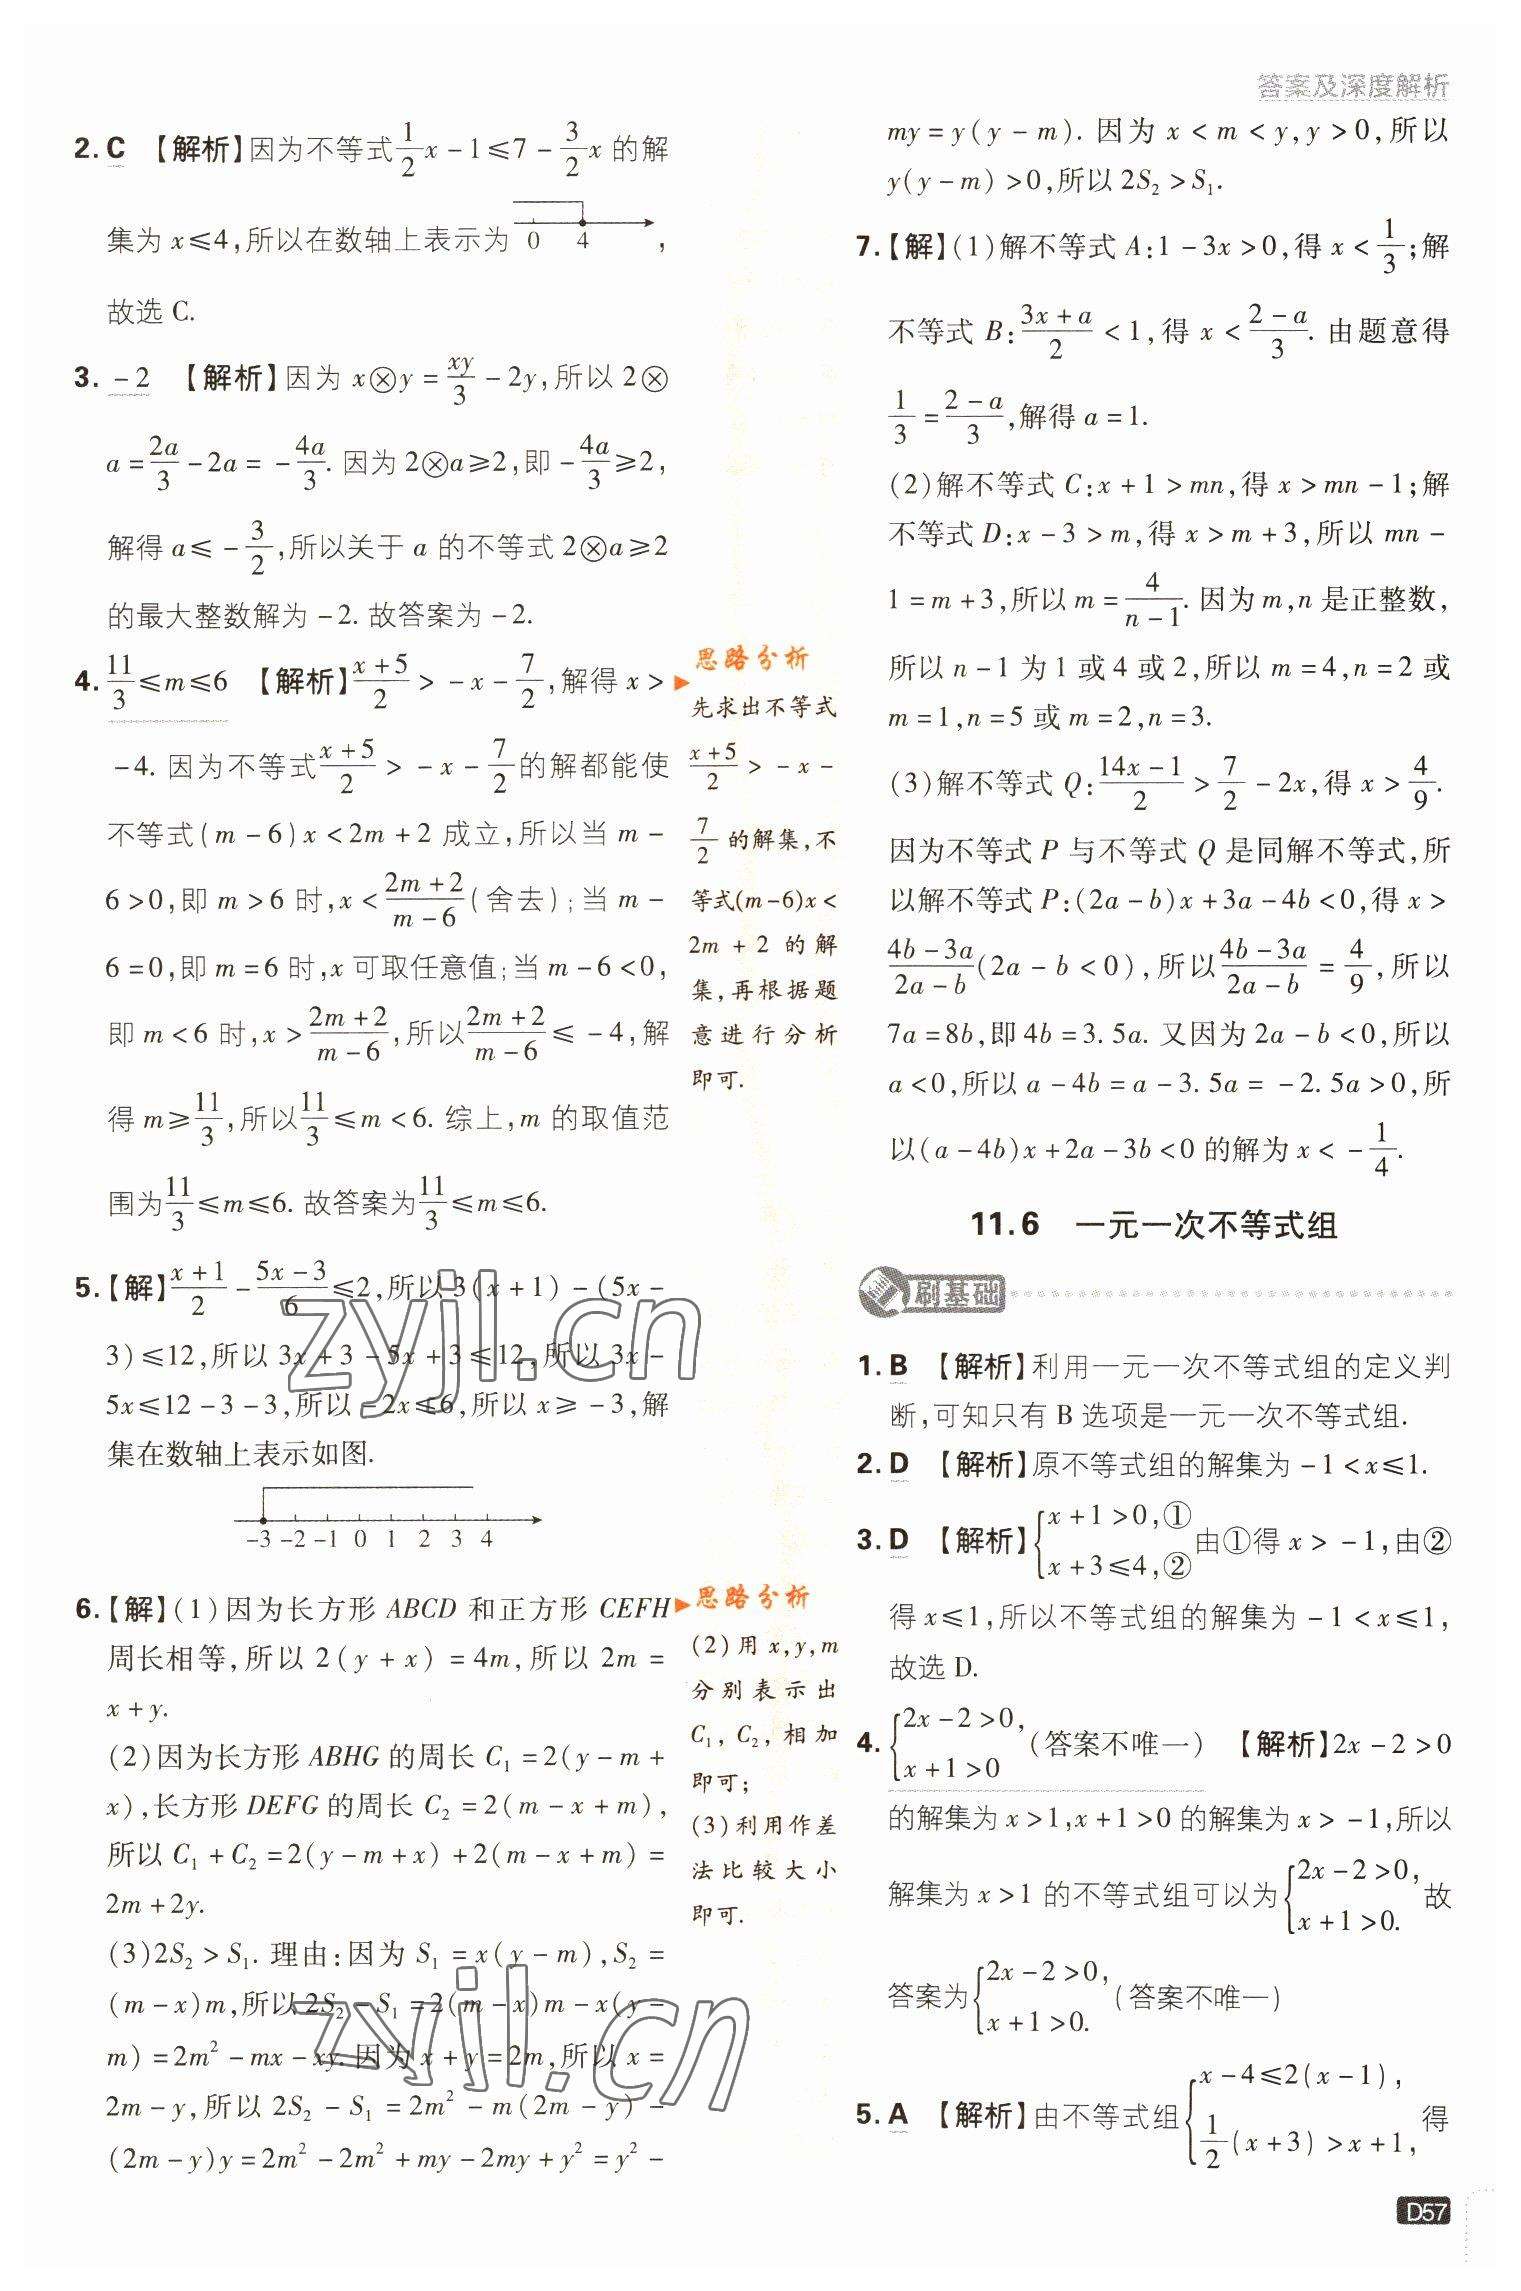 答案及深度解析
2. C 【解析】因为不等式\frac{1}{2}x-1≤7-\frac{3}{2}x 的解
集为 x≤4,所以在数轴上表示为 0 4 ,
故选 C.
3. -2 【解析】因为 x⊗y=\frac{xy}{3}-2y,所以 2⊗
a=\frac{2a}{3}-2a=-\frac{4a}{3}. 因为 2⊗a≥2,即-\frac{4a}{3}≥2,
解得 a≤-\frac{3}{2},所以关于 a 的不等式 2⊗a≥2
的最大整数解为-2. 故答案为-2.
4. \frac{11}{3}≤m≤6 【解析】\frac{x+5}{2}>-x-\frac{7}{2},解得 x>
-4. 因为不等式\frac{x+5}{2}>-x-\frac{7}{2}的解都能使
不等式(m-6)x<2m+2 成立,所以当 m-
6>0,即 m>6 时,x<\frac{2m+2}{m-6}(舍去);当 m-
6=0,即 m=6 时,x 可取任意值;当 m-6<0,
即 m<6 时,x>\frac{2m+2}{m-6},所以\frac{2m+2}{m-6}≤-4,解
得 m≥\frac{11}{3},所以\frac{11}{3}≤m<6. 综上,m 的取值范
围为\frac{11}{3}≤m≤6. 故答案为\frac{11}{3}≤m≤6.
5.【解】\frac{x+1}{2}-\frac{5x-3}{6}≤2,所以 3(x+1)-(5x-
3)≤12,所以 3x+3-5x+3≤12,所以 3x-
5x≤12-3-3,所以-2x≤6,所以 x≥-3,解
集在数轴上表示如图.
-3 -2 -1 0 1 2 3 4
6.【解】(1)因为长方形 ABCD 和正方形 CEFH
周长相等,所以 2(y+x)=4m,所以 2m=
x+y.
(2)因为长方形 ABHG 的周长 C₁=2(y-m+
x),长方形 DEFG 的周长 C₂=2(m-x+m),
所以 C₁+C₂=2(y-m+x)+2(m-x+m)=
2m+2y.
(3)2S₂>S₁. 理由:因为 S₁=x(y-m),S₂=
(m-x)m,所以 2S₂-S₁=2(m-x)m-x(y-
m)=2m²-mx-xy. 因为 x+y=2m,所以 x=
2m-y,所以 2S₂-S₁=2m²-m(2m-y)-
(2m-y)y=2m²-2m²+my-2my+y²=y²-
思路分析
先求出不等式
\frac{x+5}{2}>-x-
\frac{7}{2}的解集,不
等式(m-6)x<
2m+2 的解
集,再根据题
意进行分析
即可.
思路分析
(2)用 x,y,m
分别表示出
C₁,C₂,相加
即可;
(3)利用作差
法比较大小
即可.
my=y(y-m). 因为 x<m<y,y>0,所以
y(y-m)>0,所以 2S₂>S₁.
7.【解】(1)解不等式 A:1-3x>0,得 x<\frac{1}{3};解
不等式 B:\frac{3x+a}{2}<1,得 x<\frac{2-a}{3}. 由题意得
\frac{1}{3}=\frac{2-a}{3},解得 a=1.
(2)解不等式 C:x+1>mn,得 x>mn-1;解
不等式 D:x-3>m,得 x>m+3,所以 mn-
1=m+3,所以 m=\frac{4}{n-1}. 因为 m,n 是正整数,
所以 n-1 为 1 或 4 或 2,所以 m=4,n=2 或
m=1,n=5 或 m=2,n=3.
(3)解不等式 Q:\frac{14x-1}{2}>\frac{7}{2}-2x,得 x>\frac{4}{9}.
因为不等式 P 与不等式 Q 是同解不等式,所
以解不等式 P:(2a-b)x+3a-4b<0,得 x>
\frac{4b-3a}{2a-b}(2a-b<0),所以\frac{4b-3a}{2a-b}=\frac{4}{9},所以
7a=8b,即 4b=3.5a. 又因为 2a-b<0,所以
a<0,所以 a-4b=a-3.5a=-2.5a>0,所
以(a-4b)x+2a-3b<0 的解为 x<-\frac{1}{4}.
11.6 一元一次不等式组
刷基础
1. B 【解析】利用一元一次不等式组的定义判
断,可知只有 B 选项是一元一次不等式组.
2. D 【解析】原不等式组的解集为-1<x≤1.
3. D 【解析】{x+1>0,① x+3≤4,② 由①得 x>-1,由②
得 x≤1,所以不等式组的解集为-1<x≤1,
故选 D.
4. {2x-2>0, x+1>0 (答案不唯一) 【解析】2x-2>0
的解集为 x>1,x+1>0 的解集为 x>-1,所以
解集为 x>1 的不等式组可以为{2x-2>0, x+1>0. 故
答案为{2x-2>0, x+1>0. (答案不唯一)
5. A 【解析】由不等式组{x-4≤2(x-1), \frac{1}{2}(x+3)>x+1, 得
D57
zyjl.cn
zyjl.cn